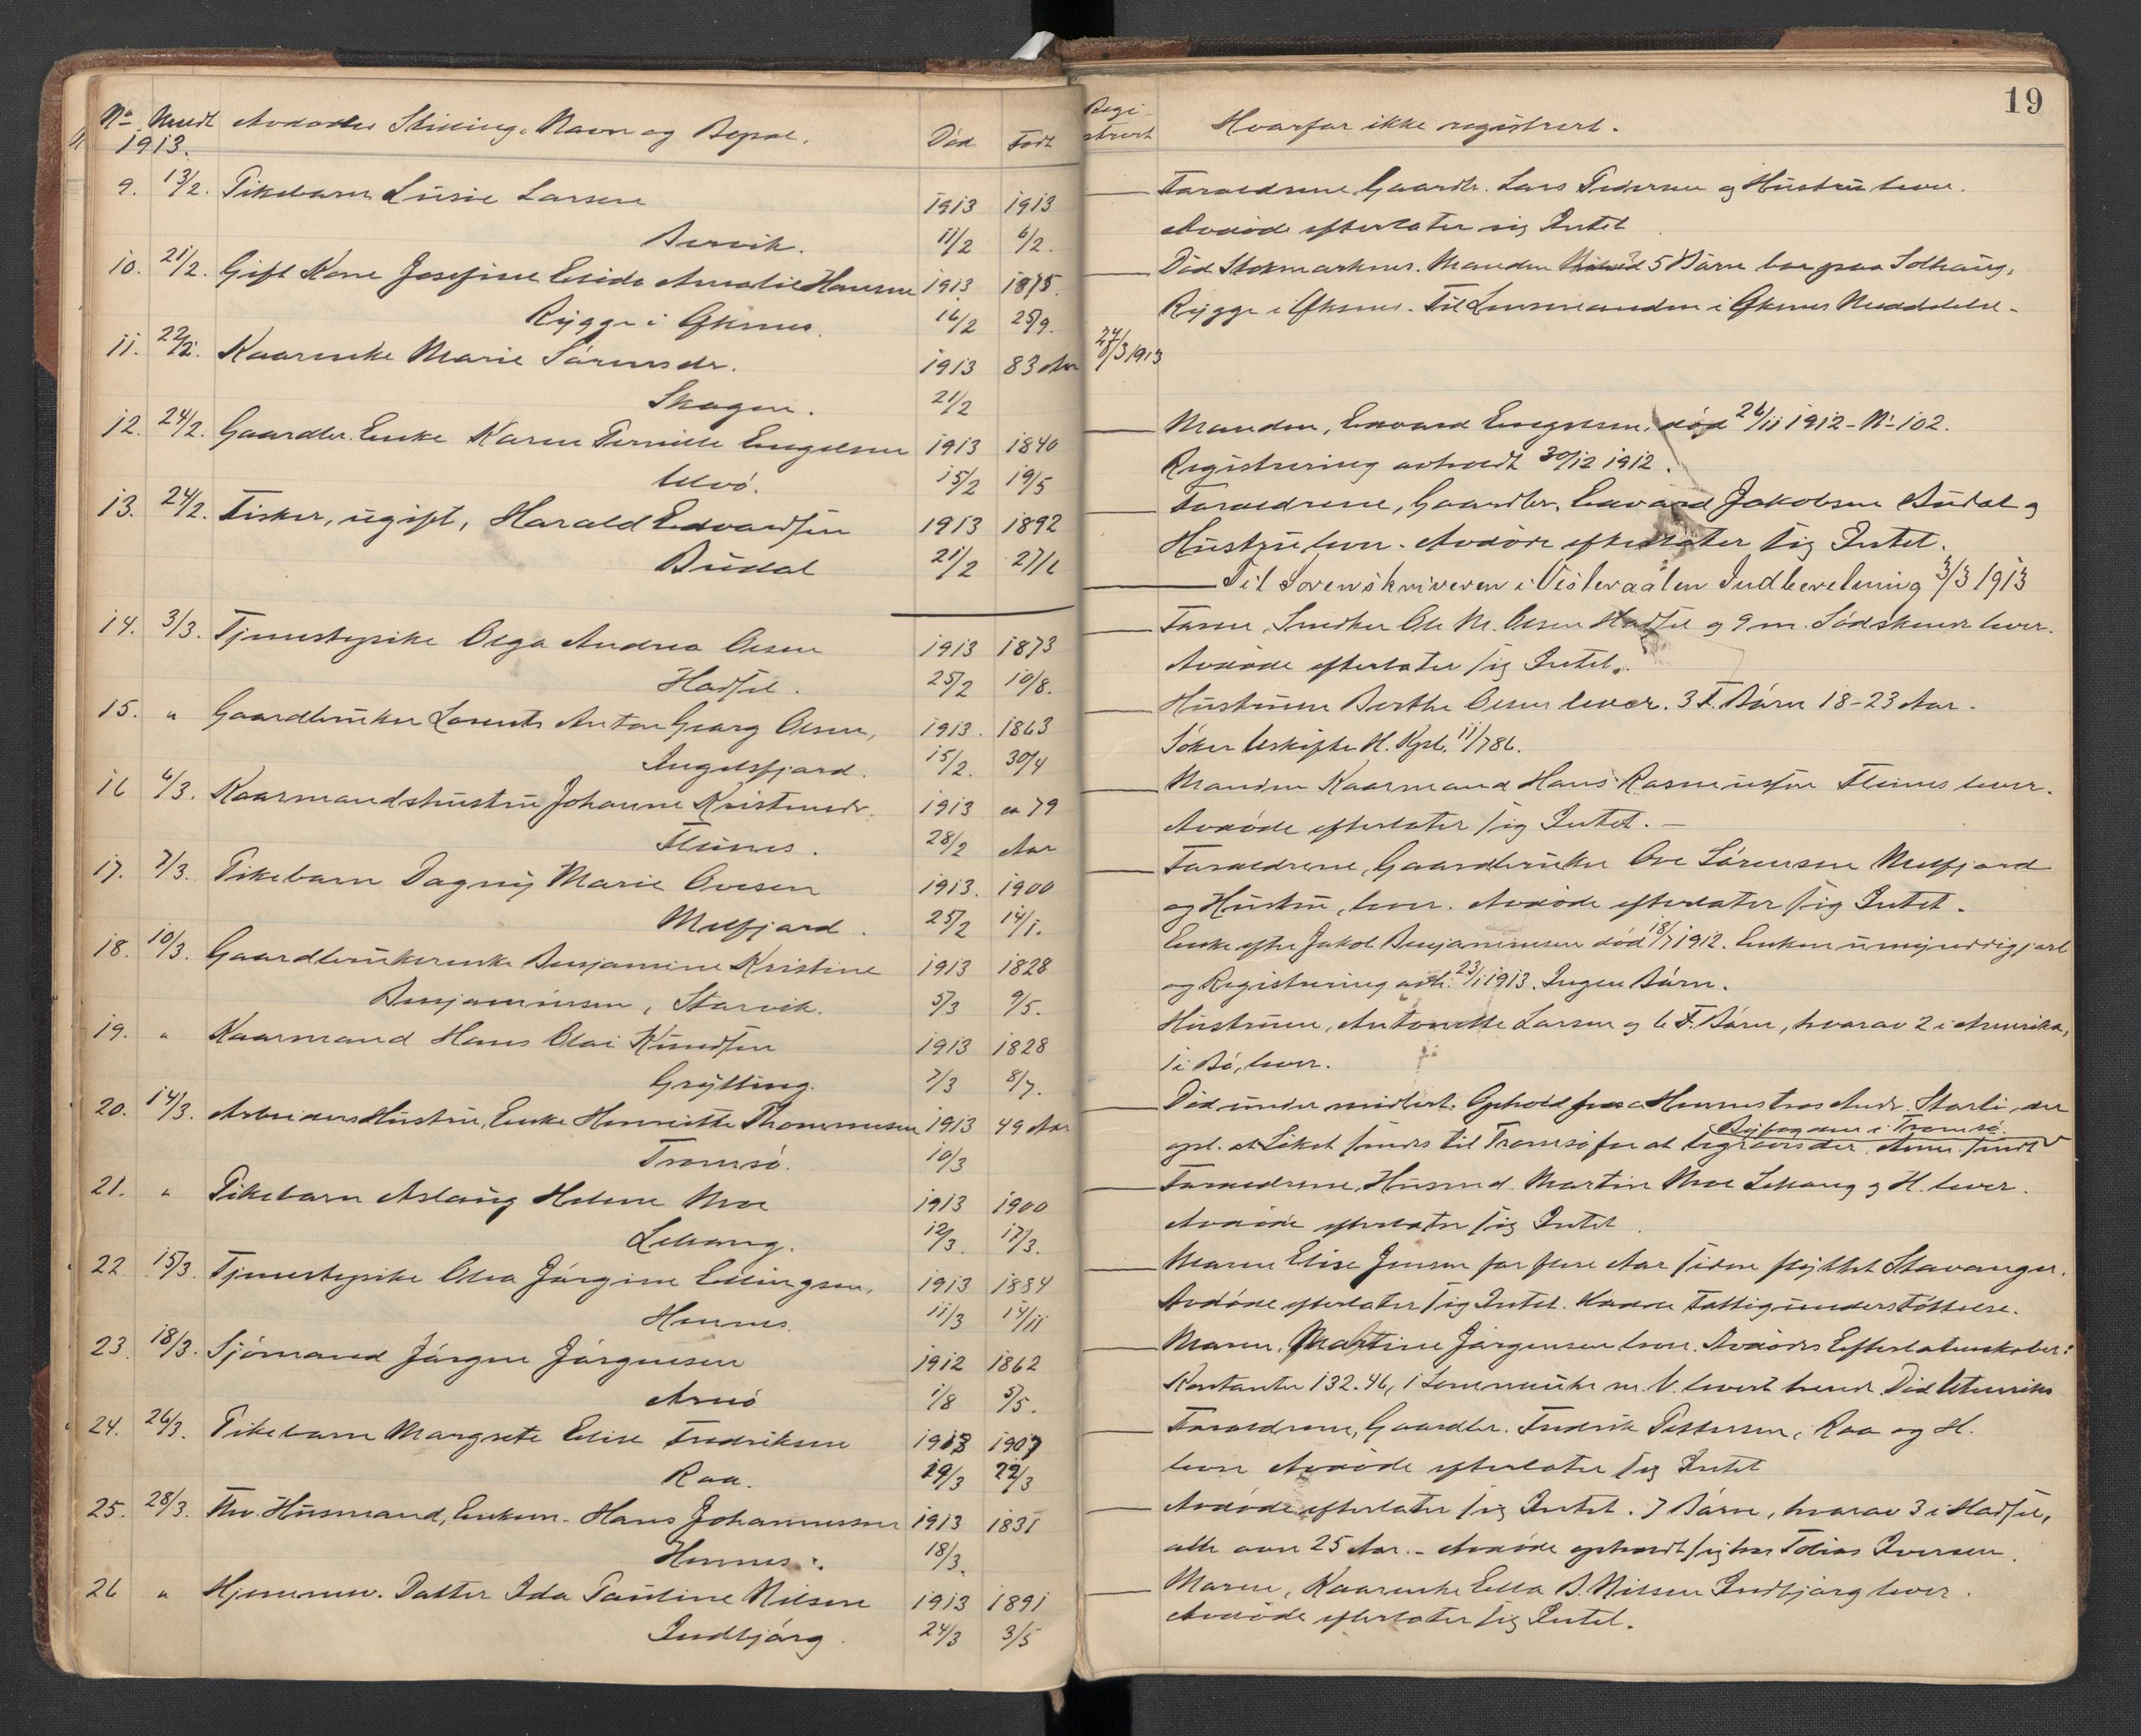 19
No Meldt Avdødes Stilling, Navn og Bopæl. Død Født
1913.
9. 13/2. Pikebarn Lusie Larsen 1913 1913
Bervik. 11/2 6/2.
10. 21/2. Gift Kone Josefine Elida Amalie Hansen 1913 1875.
Rygge i Øksnes. 16/2 25/9.
11. 22/2. Kaarenke Marie Sørensdr. 1913 83 Aar
Skagen. 21/2
12. 24/2. Gaardbr. Enke Karen Pernille Engelsen 1913 1840
Ulvø. 15/2 19/5
13. 24/2. Fisker, ugift, Harald Edvardsen 1913 1892
Budal 21/2 27/6
14. 3/3. Tjenestepike Olga Andrea Olsen 1913 1873
Hadsel. 25/2 10/8.
15. " Gaardbruker Lorents Anton Georg Olsen, 1913. 1863
Ingelsfjord. 15/2. 30/4
16 6/3. Kaarmandshustru Johanne Kristensdr. 1913 ca 79
Flines. 28/2 Aar
17. 7/3. Pikebarn Dagny Marie Ovesen 1913. 1900
Melfjord. 25/2 14/1.
18. 10/3. Gaardbrukerenke Benjamine Kristine 1913 1828
Benjaminsen, Storvik. 5/3 9/5.
19. " Kaarmand Hans Olai Knudsen 1913 1828
Grytting. 7/3 8/7.
20. 14/3. Arbeiders Hustru, Enke Henriette Thommesen 1913 49 Aar
Tromsø. 10/3
21. " Pikebarn Aslaug Helene Moe 1913 1900
Lekang. 12/3. 17/3.
22 15/3. Tjenestepike Olea Jørgine Ellingsen, 1913 1884
Hennes. 11/3 14/11
23. 18/3. Sjømand Jørgen Jørgensen 1912 1862
Arnø 1/8 5/5.
24. 26/3. Pikebarn Margrete Elise Fredriksen 1913 1907
Raa. 19/3 22/3
25. 28/3. Fhv. Husmand, Enkem. Hans Johannessen 1913 1831
Hennes. 18/3.
26 " Hjemmev. Datter Ida Pauline Nilsen 1913 1891
Indbjørg. 24/3 3/5
Regi-
strert Hvorfor ikke registrert.
Forældrene Gaardbr. Lars Pedersen og Hustru lever.
Avdøde efterlater sig Intet
Død Stokmarknes. Manden 5 Børn bor paa Solhaug,
Rygge i Øksnes. Til Lensmanden i Øksnes Meddelelse.
27/3 1913
Manden, Edvard Engelsen, død 26/11 1912 - No 102.
Registrering avholdt 30/12 1912.
Forældrene, Gaardbr. Edvard Jakobsen Budal og
Hustru lever. Avdøde efterlater sig Intet.
Til Sorenskriveren i Vesteraalen Indberetning 3/3 1913
Faren, Snedker Ole M. Olsen Hadsel og 9 m. Sødskende lever.
Avdøde efterlater sig Intet.
Hustruen Berthe Olsen lever. 3 F. Børn 18-23 Aar.
Søker Uskifte H. Kgrb. 11/786.
Manden Kaarmand Hans Rasmussen Flines lever.
Avdøde efterlater sig Intet. -
Forældrene, Gaardbruker Ove Sørensen Melfjord
og Hustru, lever. Avdøde efterlater sig Intet.
Enke efter Jakob Benjaminsen død 18/7 1912. Enken umyndiggjort
og Registrering avh. 23/1 1913. Ingen Børn.
Hustruen, Antonette Larsen og 6 F. Børn, hvorav 2 i Amerika,
1 i Bø, lever.
Død under midlert. Ophold hos Andr. Storli, der
opl. at Liket sendes til Tromsø for at begraves der. Anm. sendt
Byfogden i Tromsø.
Forældrene, Husmd. Martin Moe Lekang og H. lever.
Avdøde efterlater sig Intet.
Moren Elise Jensen for flere Aar siden flyttet Stavanger.
Avdøde efterlater sig Intet. Hadde Fattigunderstøttelse.
Moren, Martine Jørgensen lever. Avdødes Efterlatenskaber:
Kontanter 132.46, 1 Lommeuhr m. V. Død Utenriks
Forældrene, Gaardbr. Fredrik Pettersen, Raa og H.
lever Avdøde efterlater sig Intet
Avdøde efterlater sig Intet. 7 Børn, hvorav 3 i Hadsel,
alle over 25 Aar. - Avdøde opholdt sig hos Tobias Iversen.
Moren, Kaarenke Ella B. Nilsen Indbjørg lever.
Avdøde efterlater sig Intet.